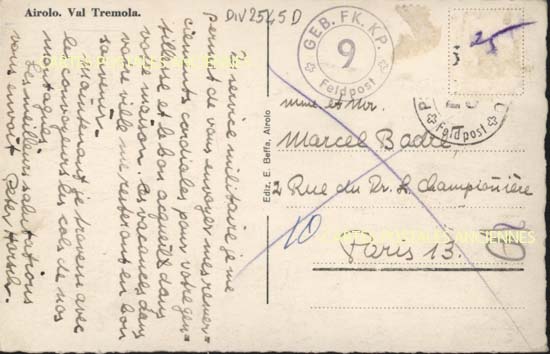 Airolo. Val Tremola.
DIV2545D
GEB. FK. KP.
9
Feldpost
25
Feldpost
En service militaire je me
permet de vous envoyer mes remer=
ciements cordiales pour votre gen=
tillesse et le bon acqueil dans
votre maison. Les vacances dans
votre ville me restront en bon
souvenir.
Maintenant je travem avec
les convoyeurs les cols de nos
montagnes.
Les meilleurs salutations
vous envoit Peter
Ediz. E. Beffa, Airolo
Mme et Mr.
Marcel Badré
2 Rue du Dr. L. Championnière
10
Paris 13.
CARTES POSTALES ANCIENNES